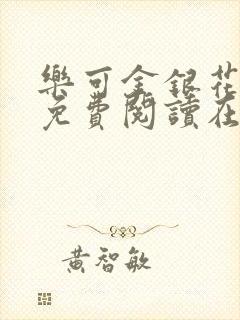 樂可金銀花
免費閱讀在
黃智敏